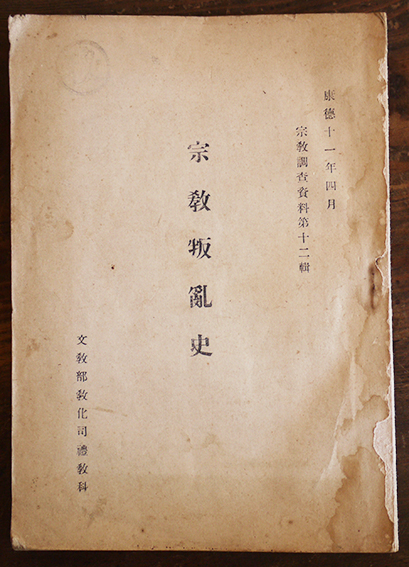 康德十一年四月
宗敎調査資料第十二輯
宗敎叛亂史
文敎部敎化司禮敎科